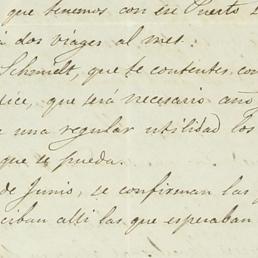 que tenemos con ese Puerto
dos viages al mes.
Schmidt, que te contentes con
dice, que será necesario
una regular utilidad los
que se pueda.
de Junio, se confirman las
ciban alli las que esperaban